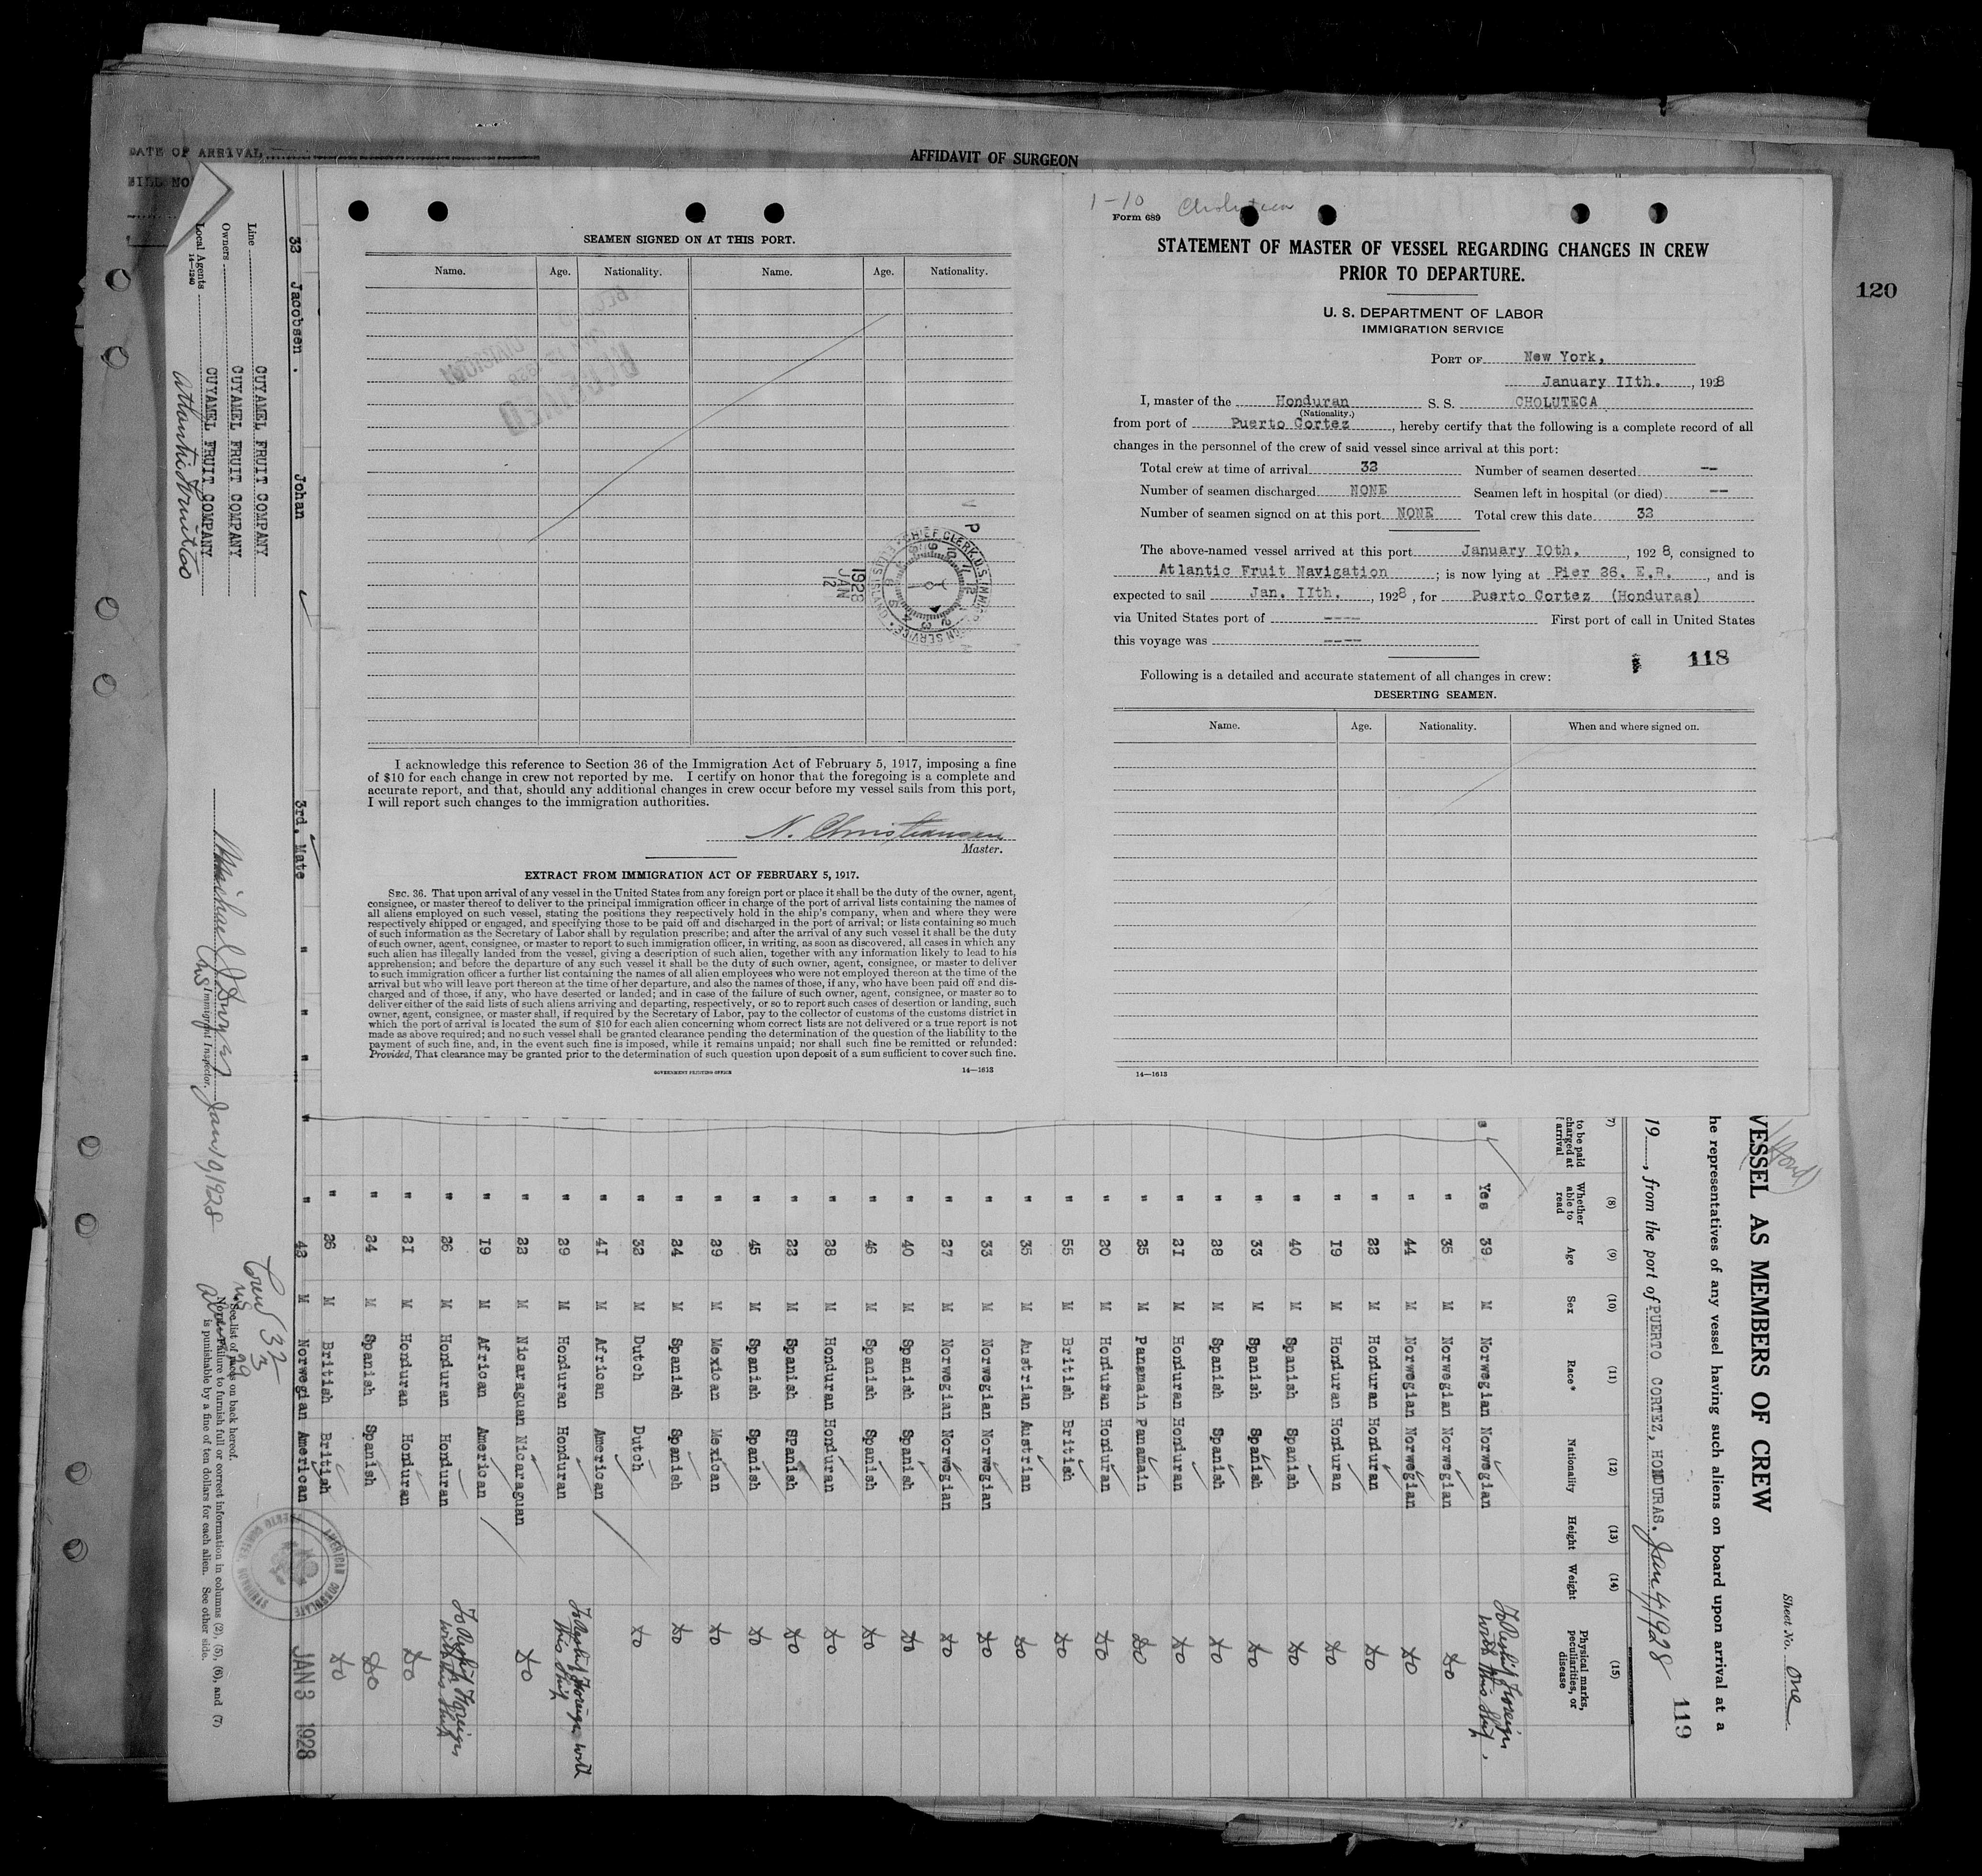 DATE OF ARRIVAL
AFFIDAVIT OF SURGEON
120
SEAMEN SIGNED ON AT THIS PORT.
Name. Age. Nationality. Name. Age. Nationality.
CHIEF CLERK, U.S. IMMIGRATION SERVICE
1928 JAN 12 P
I acknowledge this reference to Section 36 of the Immigration Act of February 5, 1917, imposing a fine
of $10 for each change in crew not reported by me. I certify on honor that the foregoing is a complete and
accurate report, and that, should any additional changes in crew occur before my vessel sails from this port,
I will report such changes to the immigration authorities.
N. Christiansen
Master.
EXTRACT FROM IMMIGRATION ACT OF FEBRUARY 5, 1917.
SEC. 36. That upon arrival of any vessel in the United States from any foreign port or place it shall be the duty of the owner, agent,
consignee, or master thereof to deliver to the principal immigration officer in charge of the port of arrival lists containing the names of
all aliens employed on such vessel, stating the positions they respectively hold in the ship's company, when and where they were
respectively shipped or engaged, and specifying those to be paid off and discharged in the port of arrival; or lists containing so much
of such information as the Secretary of Labor shall by regulation prescribe; and after the arrival of any such vessel it shall be the duty
of such owner, agent, consignee, or master to report to such immigration officer, in writing, as soon as discovered, all cases in which any
such alien has illegally landed from the vessel, giving a description of such alien, together with any information likely to lead to his
apprehension; and before the departure of any such vessel it shall be the duty of such owner, agent, consignee, or master to deliver
to such immigration officer a further list containing the names of all alien employees who were not employed thereon at the time of the
arrival but who will leave port thereon at the time of her departure, and also the names of those, if any, who have been paid off and dis-
charged and of those, if any, who have deserted or landed; and in case of the failure of such owner, agent, consignee, or master so to
deliver either of the said lists of such aliens arriving and departing, respectively, or so to report such cases of desertion or landing, such
owner, agent, consignee, or master shall, if required by the Secretary of Labor, pay to the collector of customs of the customs district in
which the port of arrival is located the sum of $10 for each alien concerning whom correct lists are not delivered or a true report is not
made as above required; and no such vessel shall be granted clearance pending the determination of the question of the liability to the
payment of such fine, and, in the event such fine is imposed, while it remains unpaid; nor shall such fine be remitted or refunded:
Provided, That clearance may be granted prior to the determination of such question upon deposit of a sum sufficient to cover such fine.
GOVERNMENT PRINTING OFFICE 14—1613
1-10 Choluteca
Form 689
STATEMENT OF MASTER OF VESSEL REGARDING CHANGES IN CREW
PRIOR TO DEPARTURE.
U. S. DEPARTMENT OF LABOR
IMMIGRATION SERVICE
PORT OF New York,
January IIth. , 1928
I, master of the Honduran S. S. CHOLUTECA
(Nationality.)
from port of Puerto Cortez , hereby certify that the following is a complete record of all
changes in the personnel of the crew of said vessel since arrival at this port:
Total crew at time of arrival 32 Number of seamen deserted --
Number of seamen discharged NONE Seamen left in hospital (or died) --
Number of seamen signed on at this port NONE Total crew this date 32
The above-named vessel arrived at this port January IOth. , 1928, consigned to
Atlantic Fruit Navigation ; is now lying at Pier 26. E.R. , and is
expected to sail Jan. IIth. , 1928, for Puerto Cortez (Honduras)
via United States port of ---- First port of call in United States
this voyage was ----
118
Following is a detailed and accurate statement of all changes in crew:
DESERTING SEAMEN.
Name. Age. Nationality. When and where signed on.
14—1613
Sheet No. One
VESSEL AS MEMBERS OF CREW
he representatives of any vessel having such aliens on board upon arrival at a
119
19 , from the port of PUERTO CORTEZ, HONDURAS. Jan 4/1928
(7) (8) (9) (10) (11) (12) (13) (14) (15)
to be paid charged at arrival Whether able to read Age Sex Race* Nationality Height Weight Physical marks, peculiarities, or disease
Yes 39 M Norwegian Norwegian To Reship Foreign with this Ship,
" 35 M Norwegian Norwegian Do
" 44 M Norwegian Norwegian Do
" 22 M Honduran Honduran Do
" 19 M Honduran Honduran Do
" 40 M Spanish Spanish Do
" 33 M Spanish Spanish Do
" 28 M Spanish Spanish Do
" 21 M Honduran Honduran Do
" 25 M Panamain Panamain Do
" 20 M Honduran Honduran Do
" 55 M British British Do
" 35 M Austrian Austrian Do
" 33 M Norwegian Norwegian Do
" 27 M Norwegian Norwegian Do
" 40 M Spanish Spanish Do
" 46 M Spanish Spanish Do
" 28 M Honduran Honduran Do
" 22 M Spanish SPanish Do
" 45 M Spanish Spanish Do
" 29 M Mexican Mexican Do
" 24 M Spanish Spanish Do
" 32 M Dutch Dutch Do
" 41 M African American
" 29 M Honduran Honduran To Reship Foreign with this Ship
" 22 M Nicaraguan Nicaraguan Do
" 19 M African American
" 26 M Honduran Honduran To Reship Foreign with this Ship
" 21 M Honduran Honduran Do
" 24 M Spanish Spanish Do
" 26 M British British Do
32 Jacobsen . Johan 3rd. Mate " " " " " 42 M Norwegian American
JAN 3 1928
AMERICAN CONSULATE PUERTO CORTES, HONDURAS
Line GUYAMEL FRUIT COMPANY
Owners GUYAMEL FRUIT COMPANY
Local Agents GUYAMEL FRUIT COMPANY
Atlantic Fruit Co
14—1240
Immigrant Inspector.
Jan 9/1928
Crew 32
*See list of races on back hereof.
NOTE.—Failure to furnish full or correct information in columns (2), (5), (6), and (7)
is punishable by a fine of ten dollars for each alien. See other side.